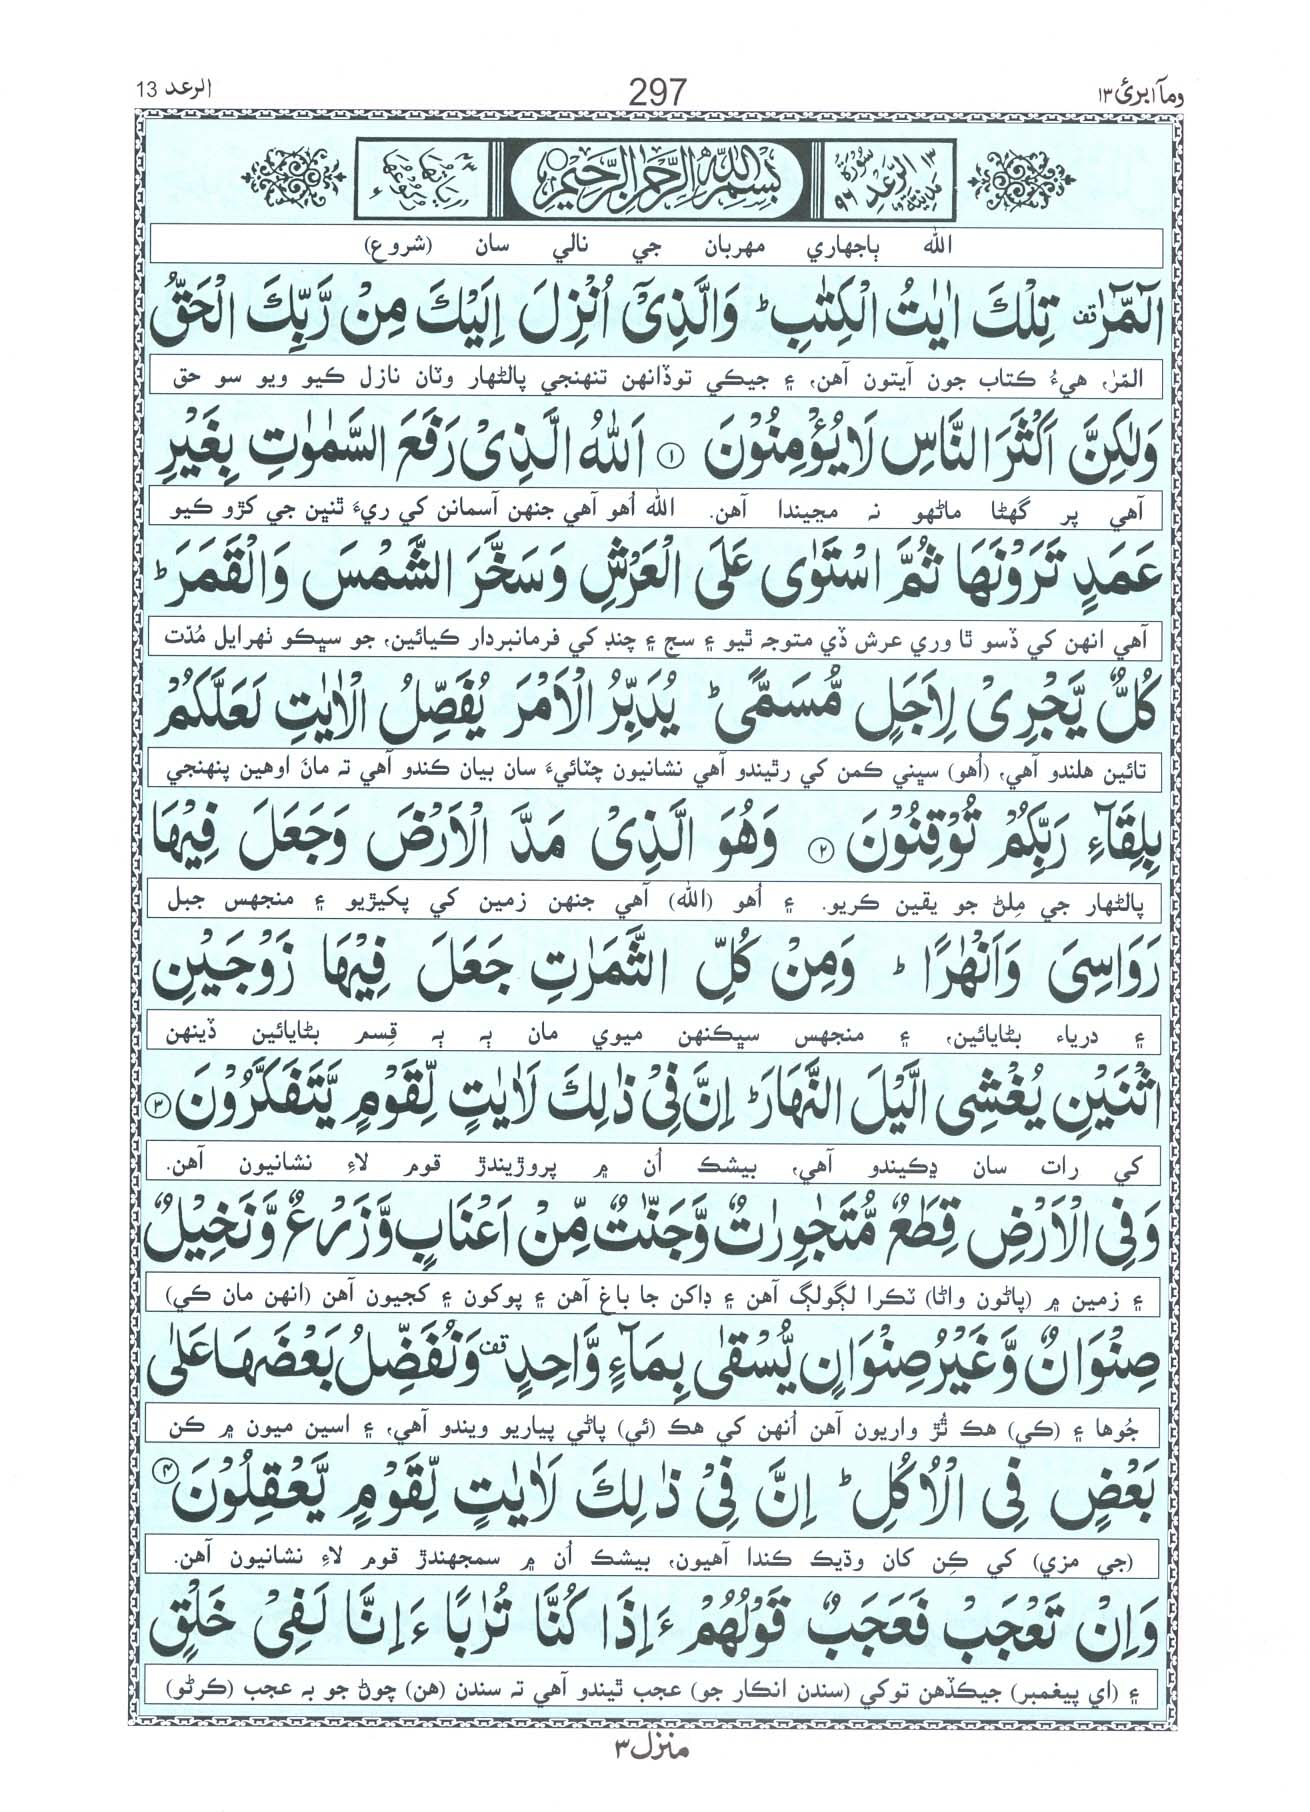 ومآ ابرئ ١٣ 297 الرعد 13
سورة الرعد مدنية ١٣ ٩٦ بسم الله الرحمن الرحيم
الله ٻاجهاري مهربان جي نالي سان (شروع)
الٓمّٓرٰ ۚ تِلْكَ اٰيٰتُ الْكِتٰبِ ؕ وَالَّذِیْۤ اُنْزِلَ اِلَيْكَ مِنْ رَّبِّكَ الْحَقُّ
المّرٰ، هيءُ ڪتاب جون آيتون آهن، ۽ جيڪي توڏانهن تنهنجي پالڻهار وٽان نازل ڪيو ويو سو حق
وَلٰكِنَّ اَكْثَرَ النَّاسِ لَا يُؤْمِنُوْنَ ۝١ اَللّٰهُ الَّذِیْ رَفَعَ السَّمٰوٰتِ بِغَيْرِ
آهي پر گهڻا ماڻهو نہ مڃيندا آهن. الله اُهو آهي جنهن آسمانن کي ريءَ ٿنڀن جي کڙو ڪيو
عَمَدٍ تَرَوْنَهَا ثُمَّ اسْتَوٰى عَلَى الْعَرْشِ وَسَخَّرَ الشَّمْسَ وَالْقَمَرَ ؕ
آهي انهن کي ڏسو ٿا وري عرش ڏي متوجہ ٿيو ۽ سج ۽ چنڊ کي فرمانبردار ڪيائين، جو سڀڪو ٺهرايل مُدّت
كُلٌّ يَّجْرِیْ لِاَجَلٍ مُّسَمًّى ؕ يُدَبِّرُ الْاَمْرَ يُفَصِّلُ الْاٰيٰتِ لَعَلَّكُمْ
تائين هلندو آهي، (اُهو) سڀني ڪمن کي رٿيندو آهي نشانيون چٽائيءَ سان بيان ڪندو آهي تہ مانَ اوهين پنهنجي
بِلِقَآءِ رَبِّكُمْ تُوْقِنُوْنَ ۝٢ وَهُوَ الَّذِیْ مَدَّ الْاَرْضَ وَجَعَلَ فِيْهَا
پالڻهار جي مِلڻ جو يقين ڪريو. ۽ اُهو (الله) آهي جنهن زمين کي پکيڙيو ۽ منجهس جبل
رَوَاسِیَ وَاَنْهٰرًا ؕ وَمِنْ كُلِّ الثَّمَرٰتِ جَعَلَ فِيْهَا زَوْجَيْنِ
۽ درياء بڻايائين، ۽ منجهس سڀڪنهن ميوي مان ٻہ ٻہ قِسم بڻايائين ڏينهن
اثْنَيْنِ يُغْشِی الَّيْلَ النَّهَارَ ؕ اِنَّ فِیْ ذٰلِكَ لَاٰيٰتٍ لِّقَوْمٍ يَّتَفَكَّرُوْنَ ۝٣
کي رات سان ڍڪيندو آهي، بيشڪ اُن ۾ پروڙيندڙ قوم لاءِ نشانيون آهن.
وَفِی الْاَرْضِ قِطَعٌ مُّتَجٰوِرٰتٌ وَّجَنّٰتٌ مِّنْ اَعْنَابٍ وَّزَرْعٌ وَّنَخِيْلٌ
۽ زمين ۾ (پاڻون واڻا) ٽڪرا لڳولڳ آهن ۽ ڊاکن جا باغ آهن ۽ پوکون ۽ کجيون آهن (انهن مان ڪي)
صِنْوَانٌ وَّغَيْرُ صِنْوَانٍ يُّسْقٰى بِمَآءٍ وَّاحِدٍ ۫ وَنُفَضِّلُ بَعْضَهَا عَلٰى
جُوها ۽ (ڪي) هڪ ٿُڙ واريون آهن اُنهن کي هڪ (ئي) پاڻي پياريو ويندو آهي، ۽ اسين ميون ۾ ڪن
بَعْضٍ فِی الْاُكُلِ ؕ اِنَّ فِیْ ذٰلِكَ لَاٰيٰتٍ لِّقَوْمٍ يَّعْقِلُوْنَ ۝٤
(جي مزي) کي ڪِن کان وڌيڪ ڪندا آهيون، بيشڪ اُن ۾ سمجهندڙ قوم لاءِ نشانيون آهن.
وَاِنْ تَعْجَبْ فَعَجَبٌ قَوْلُهُمْ ءَاِذَا كُنَّا تُرٰبًا ءَاِنَّا لَفِیْ خَلْقٍ
۽ (اي پيغمبر) جيڪڏهن توکي (سندن انڪار جو) عجب ٿيندو آهي تہ سندن (هن) چوڻ جو بہ عجب (ڪرڻو)
منزل ٣